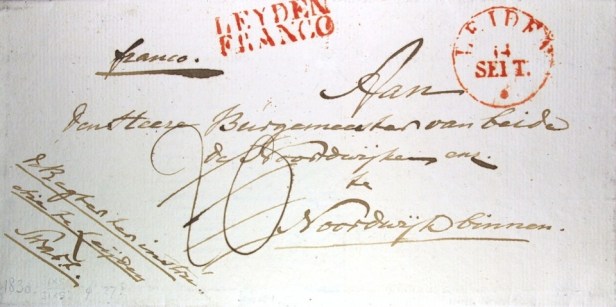 LEYDEN
FRANCO
LEIDEN
14
SEPT.
franco.
Aan
den Heere Burgemeester van beide
de Noordwijken enz.
te
Noordwijk binnen.
de Regter ter instr.
Leijden